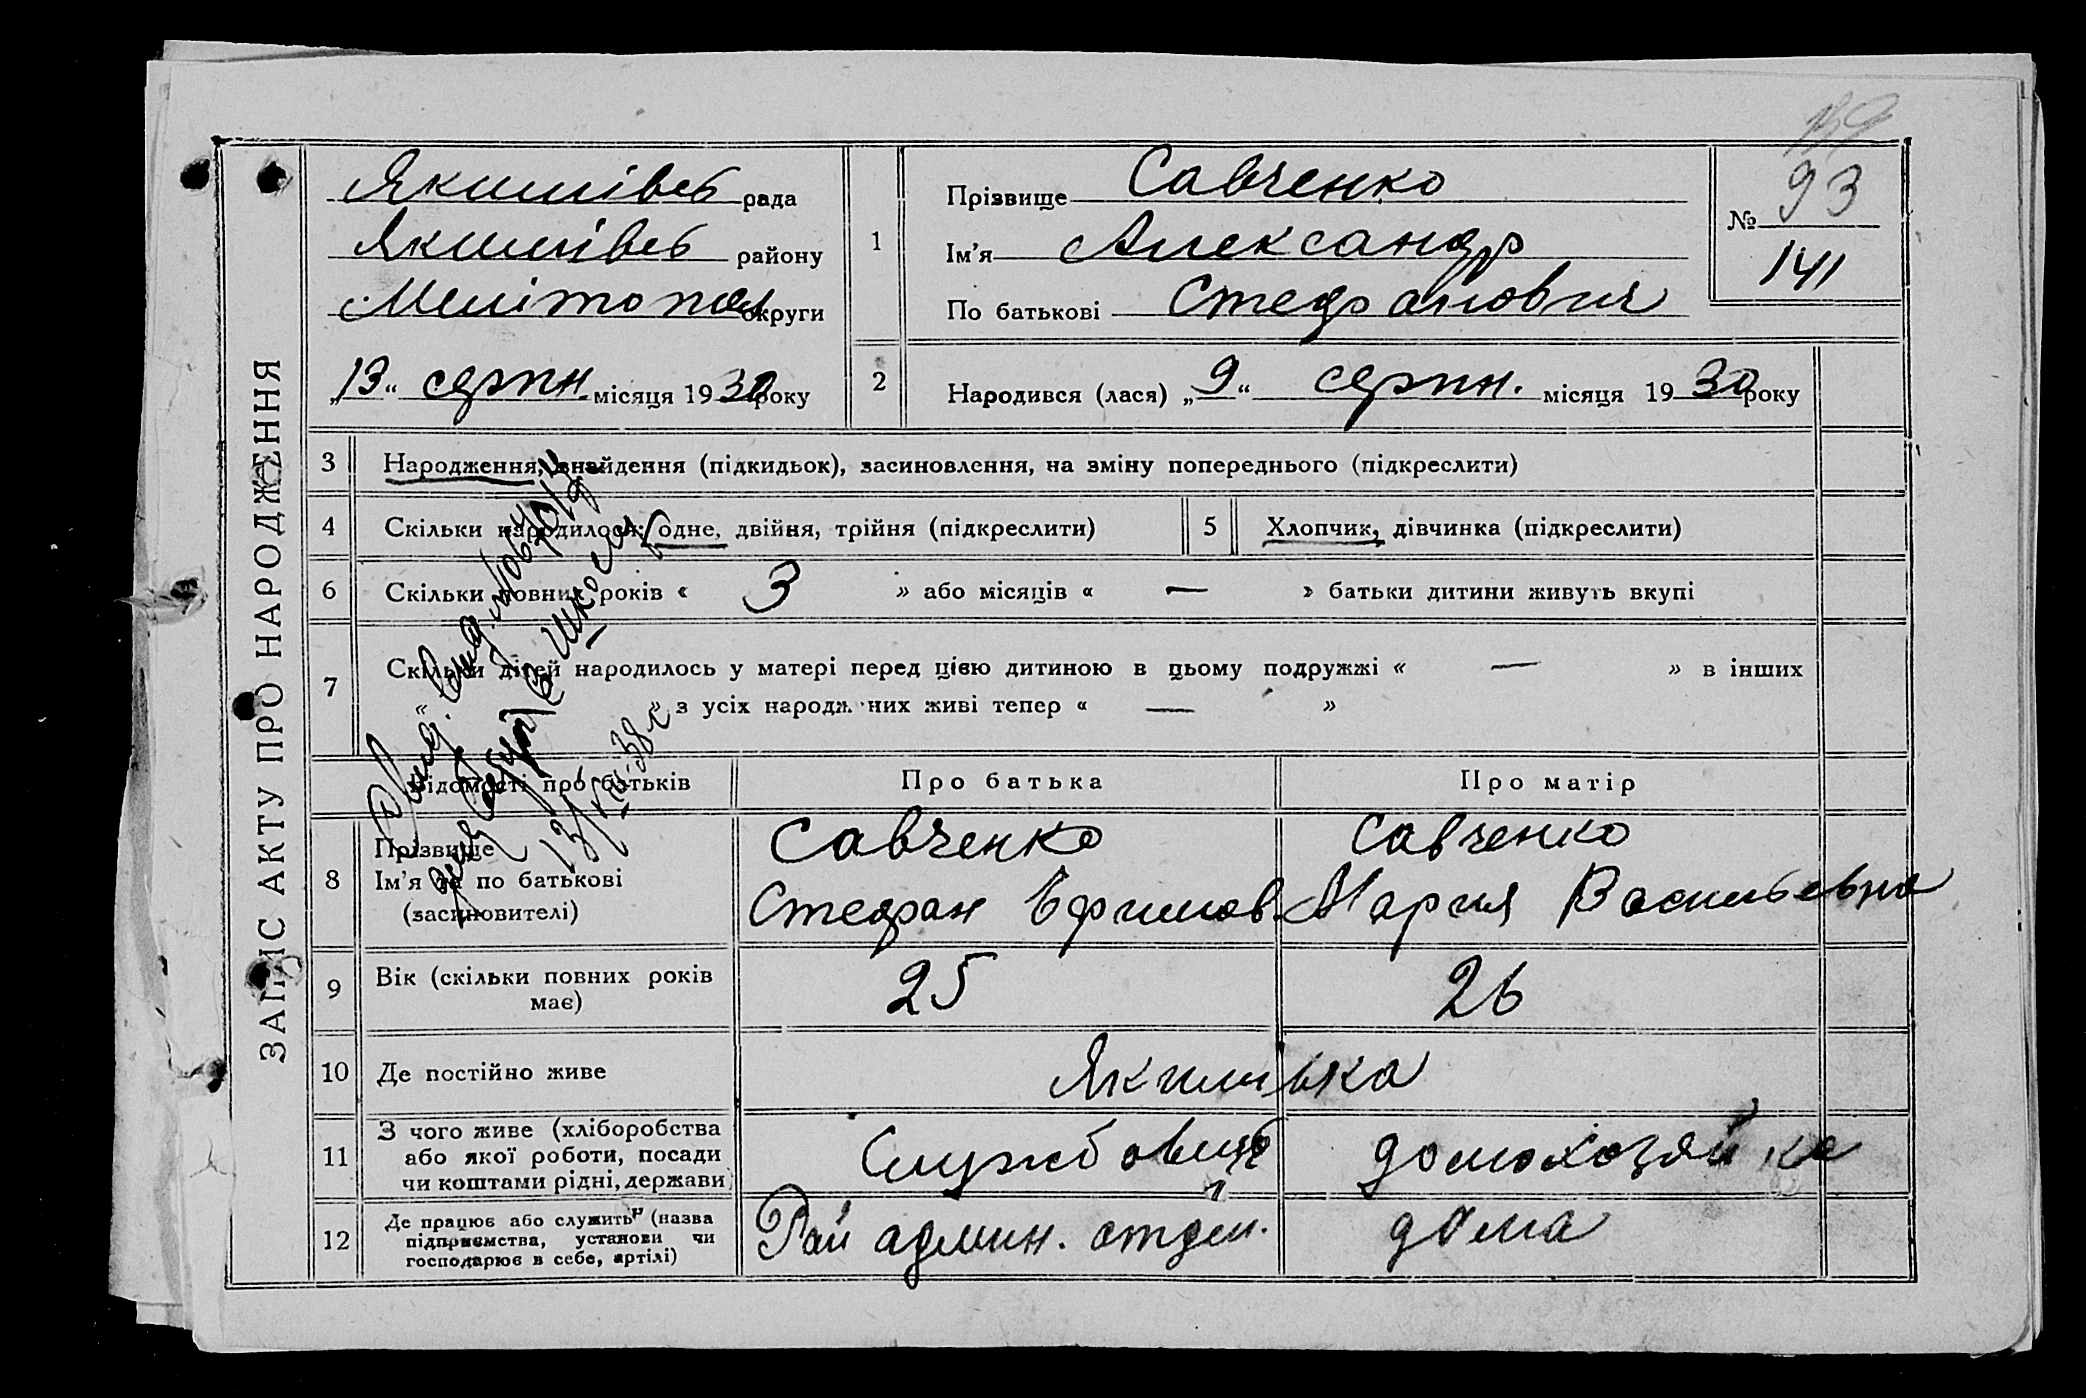 ЗАПИС АКТУ ПРО НАРОДЖЕННЯ
Якимівсь рада
Якимівсь району
Мелітопол округи
„13“ серпн. місяця 1930 року
1
Прізвище Савченко
Ім'я Александр
По батькові Стефанович
139
№ 93
141
2
Народився (лася) „9“ серпн. місяця 1930 року
3 Народження, знайдення (підкидьок), засиновлення, на зміну попереднього (підкреслити)
4 Скільки народилося: одне, двійня, трійня (підкреслити) 5 Хлопчик, дівчинка (підкреслити)
6 Скільки повних років « 3 » або місяців « — » батьки дитини живуть вкупі
7 Скільки дітей народилось у матері перед цією дитиною в цьому подружжі « — » в інших
« » з усіх народж них живі тепер « — »
Відомості про батьків Про батька Про матір
8 Прізвище
Ім'я та по батькові
(засиновителі)
Савченко
Стефан Ефимов.
Савченко
Мария Васильевна
9 Вік (скільки повних років має) 25 26
10 Де постійно живе Якимівка
11 З чого живе (хліборобства
або якої роботи, посади
чи коштами рідні, держави
Службовець
домохозяйка
12 Де працює або служить (назва
підприємства, установи чи
господарює в себе, артілі)
Рай админ. отдел.
дома
школы